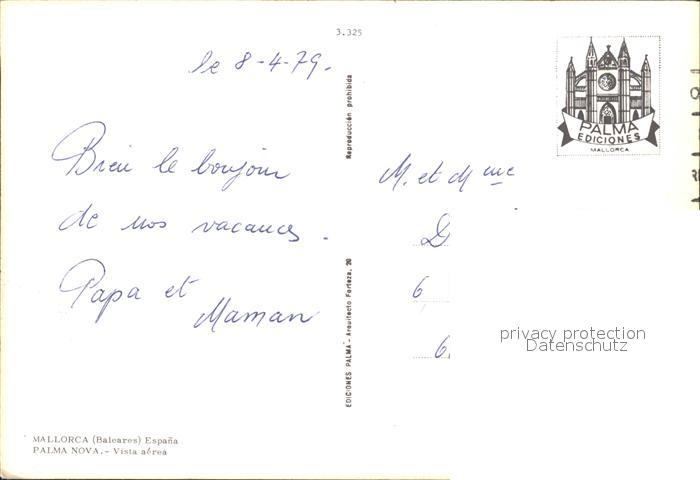 3.325
le 8-4-79.
Bien le boujour
de nos vacances.
Papa et
Maman
MALLORCA (Baleares) España
PALMA NOVA.- Vista aérea
Reproducción prohibida
EDICIONES PALMA - Arquitecto Forteza, 30
PALMA
EDICIONES
MALLORCA
M. et Mme
D
6
6
privacy protection
Datenschutz